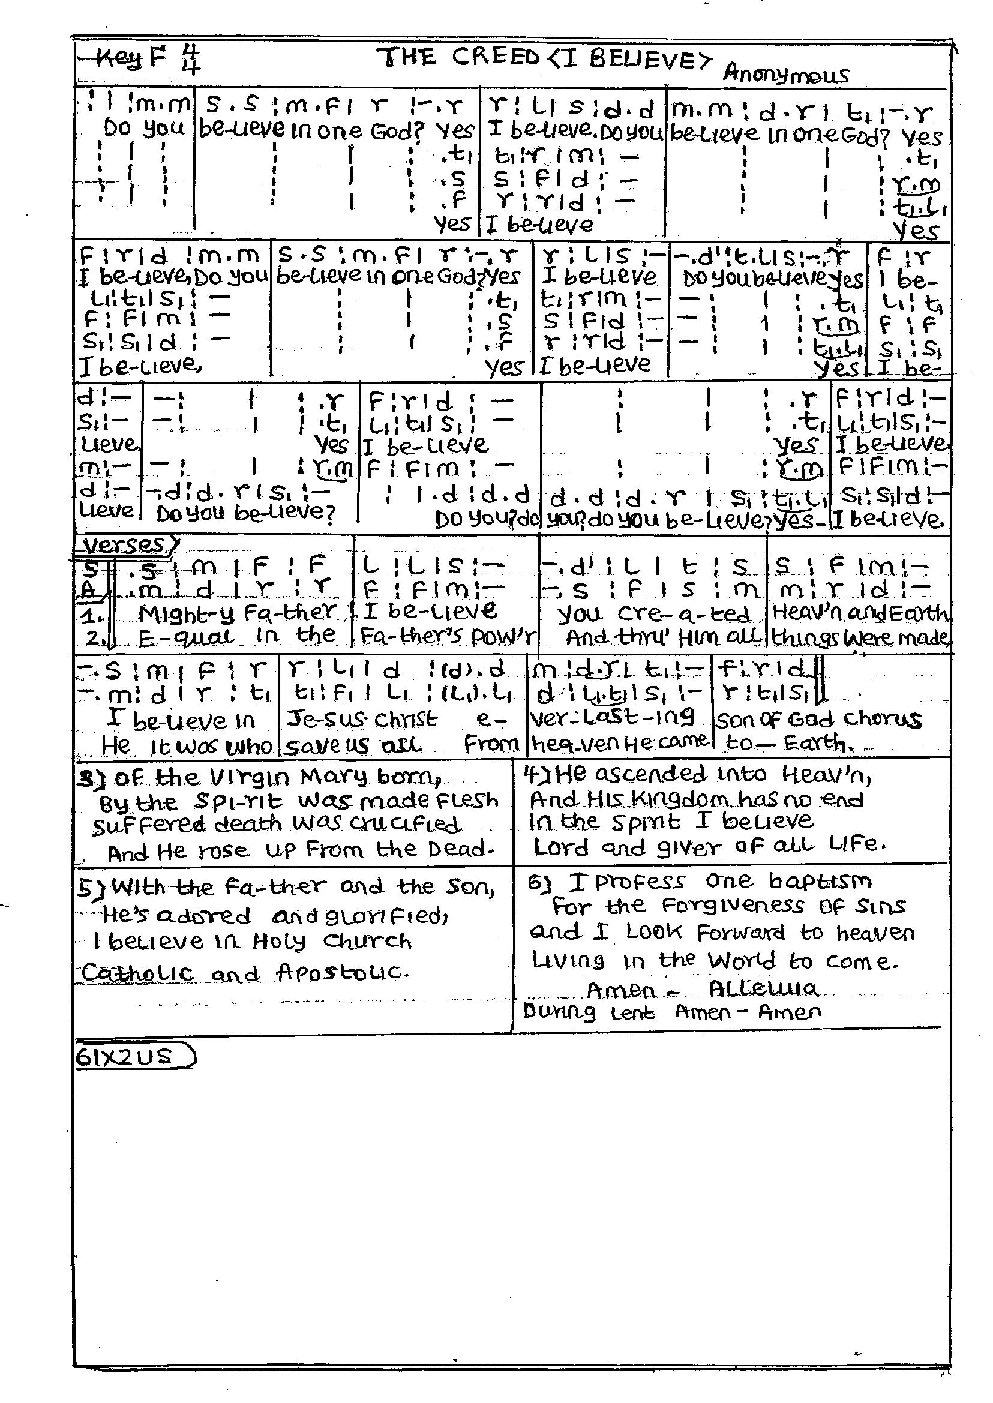 Key F 4/4 THE CREED <I BELIEVE> Anonymous
: | : m.m | s.s : m.f | r :-.r | r : l | s : d.d | m.m : d.r | t₁ :-.r
Do you believe in one God? Yes I believe. Do you believe in one God? Yes
: | : | : | : .t₁ | t₁ : r | m : – | : | : .t₁
: | : | : | : .s | s : f | d : – | : | : r.m
: | : | : | : .f | r : r | d : – | : | : t₁.l₁
Yes I believe Yes
f : r | d : m.m | s.s : m.f | r :-.r | r : l | s :– | –.d' : t.l | s :-.r | f : r
I be-lieve, Do you believe in one God? Yes I be-lieve Do you believe Yes I be-
l₁ : t₁ | s₁ : – | : | : .t₁ | t₁ : r | m :– | – : | : .t₁ | l₁ : t₁
f : f | m : – | : | : .s | s : f | d :– | – : | : r.m | f : f
s₁ : s₁ | d : – | : | : .f | r : r | d :– | – : | : t₁.l₁ | s₁ : s₁
I be-lieve, Yes I be-lieve Yes I be-
d :– | – : | : .r | f : r | d : – | : | : .r | f : r | d :–
s₁ :– | – : | : .t₁ | l₁ : t₁ | s₁ : – | : | : .t₁ | l₁ : t₁ | s₁ :–
lieve Yes I be-lieve Yes I be-lieve
m :– | – : | : r.m | f : f | m : – | : | : r.m | f : f | m :–
d :– | -.d : d.r | s₁ :– | : | .d : d.d | d.d : d.r | s₁ : t₁.l₁ | s₁ : s₁ | d :–
lieve Do you be-lieve? Do you? do you? do you be-lieve? Yes- I believe.
Verses>
S .s : m | f : f | l : l | s :– | –.d' : l | t : s | s : f | m :–
A .m : d | r : r | f : f | m :– | –.s : f | s : m | m : r | d :–
1. Might-y Fa-ther I be-lieve You cre-a-ted Heav'n and Earth
2. E-qual in the Fa-ther's pow'r And thru' Him all things were made
–.s : m | f : r | r : l₁ | d :(d).d | m : d.r | t₁ :– | f : r | d
–.m : d | r : t₁ | t₁ : f₁ | l₁ :(l₁).l₁ | d : l₁.t₁ | s₁ :– | r : t₁ | s₁
I believe in Je-sus Christ e- ver-Last-ing Son of God chorus
He it was who save us all From heaven He came to— Earth.
3) Of the Virgin Mary born,
By the Spi-rit was made flesh
Suffered death was crucified
And He rose up from the Dead.
4) He ascended into Heav'n,
And His Kingdom has no end
In the Spirit I believe
Lord and giver of all Life.
5) With the Fa-ther and the Son,
He's adored and glorified,
I believe in Holy Church
Catholic and Apostolic.
6) I profess one baptism
For the Forgiveness of Sins
and I Look forward to heaven
Living in the World to come.
Amen - Alleluia
During Lent Amen - Amen
61X2US